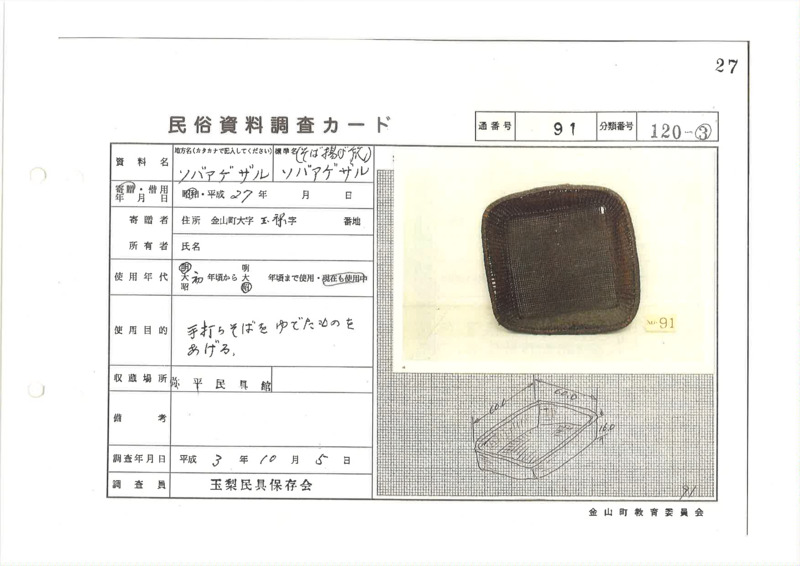 27
民俗資料調査カード
通番号 91 分類番号 120-③
資料名 地方名(カタカナで記入してください) ソバアゲザル 標準名 (そば揚げ笊) ソバアゲザル
寄贈・借用年月日 昭和・平成 27年 月 日
寄贈者 住所 金山町大字 玉梨 字 番地
所有者 氏名
使用年代 明大昭 初 年頃から 明大昭 年頃まで使用・現在も使用中
使用目的 手打ちそばをゆでたものを
あげる。
収蔵場所 弥平民具館
備考
調査年月日 平成 3年 10月 5日
調査員 玉梨民具保存会
No. 91
60.0
60.0
16.0
91
金山町教育委員会